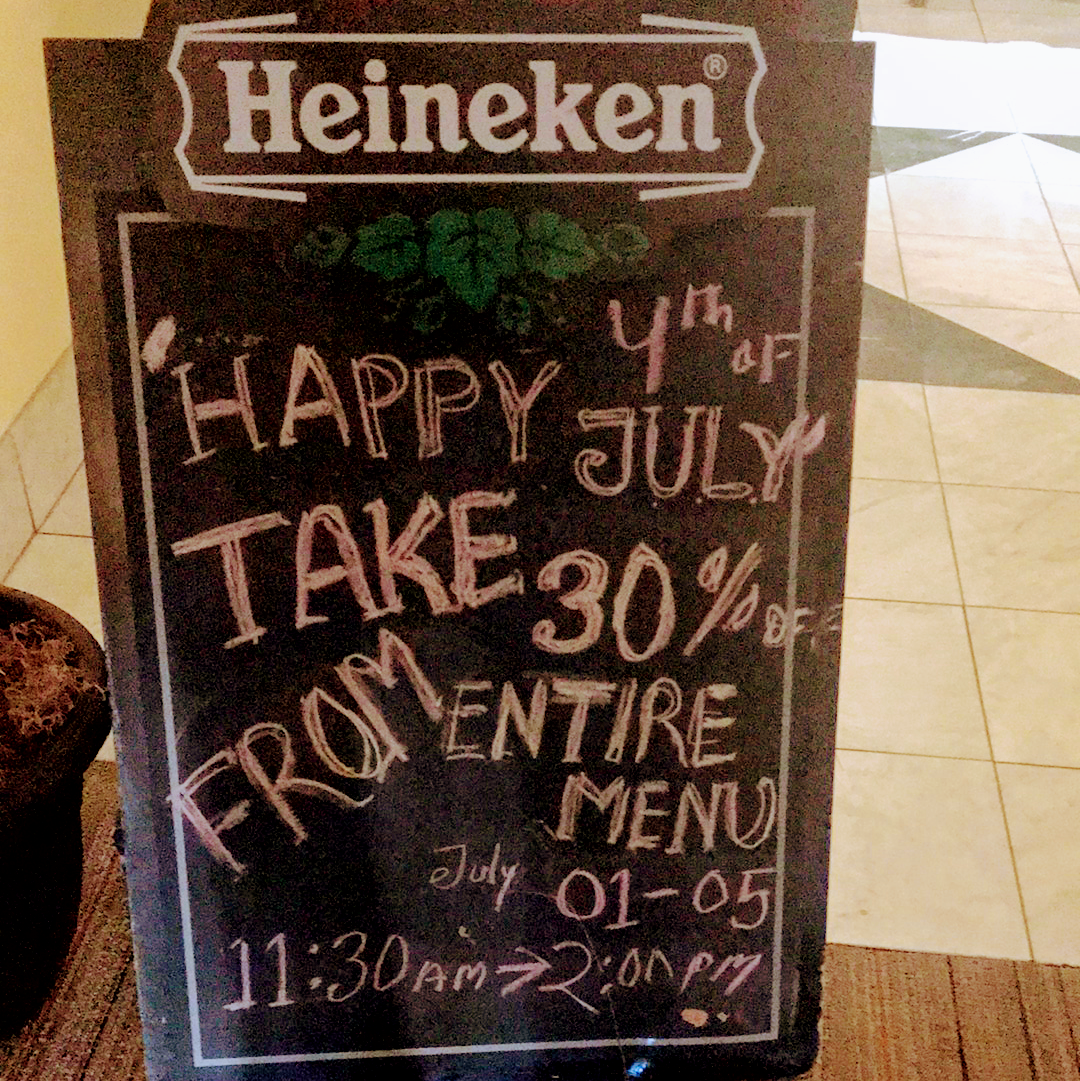 Heineken®
HAPPY 4th OF
JULY
TAKE 30% OFF
FROM ENTIRE
MENU
July 01-05
11:30 AM → 2:00 PM